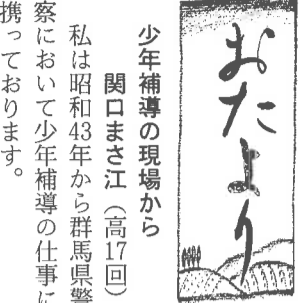 おたより
少年補導の現場から
関口まさ江(高17回)
私は昭和43年から群馬県警
察において少年補導の仕事に
携っております。